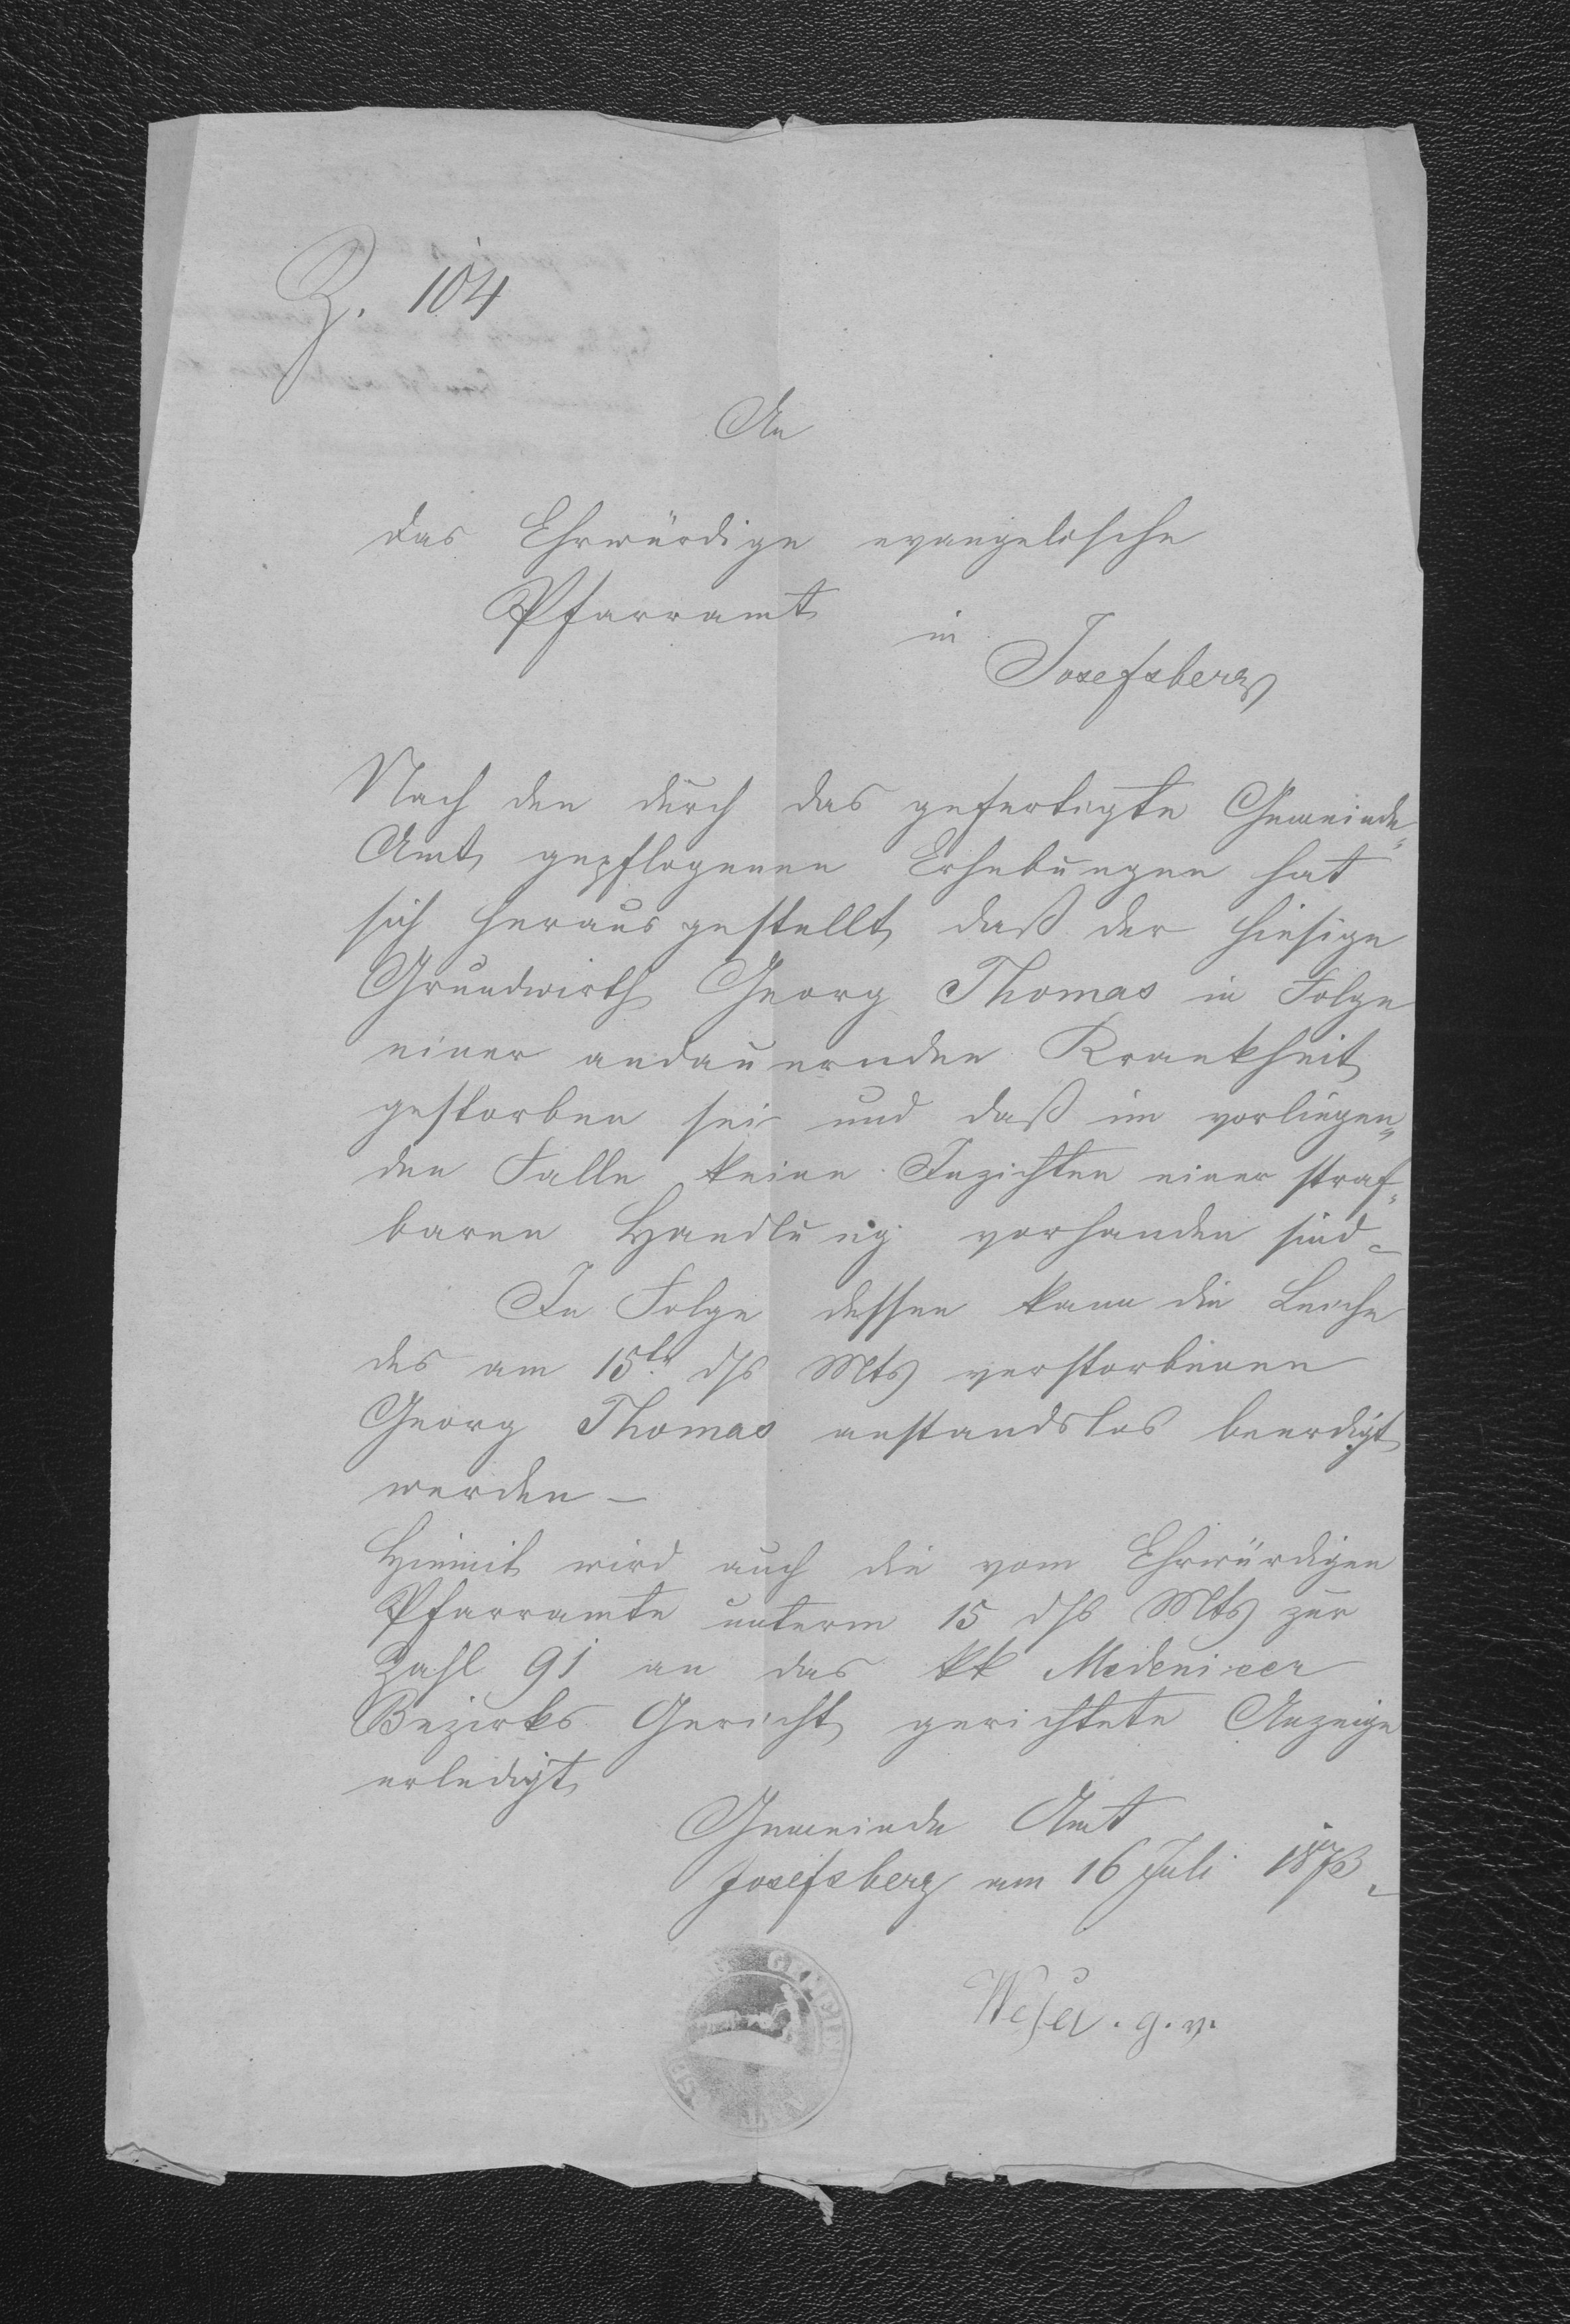 Z. 104
An
das Ehrwürdige evangelische
Pfarramt
in
Josefsberg
Nach den durch das gefertigte Gemeinde-
Amt gepflogenen Erhebungen hat
sich heraus gestellt, daß der hiesige
Grundwirth Georg Thomas in Folge
einer andauernden Krankheit
gestorben sei und daß im vorliegen-
den Falle keine Inzichten einer straf-
baren Handlung vorhanden sind.
In Folge dessen kann die Leiche
des am 15t. dß Mts verstorbenen
Georg Thomas anstandslos beerdigt
werden –
Hiemit wird auch die vom Ehrwürdigen
Pfarramte unterm 15 dß Mts zur
Zahl 91 an das kk Medenicer
Bezirks Gericht gerichtete Anzeige
erledigt
Gemeinde Amt
Josefsberg am 16 Juli